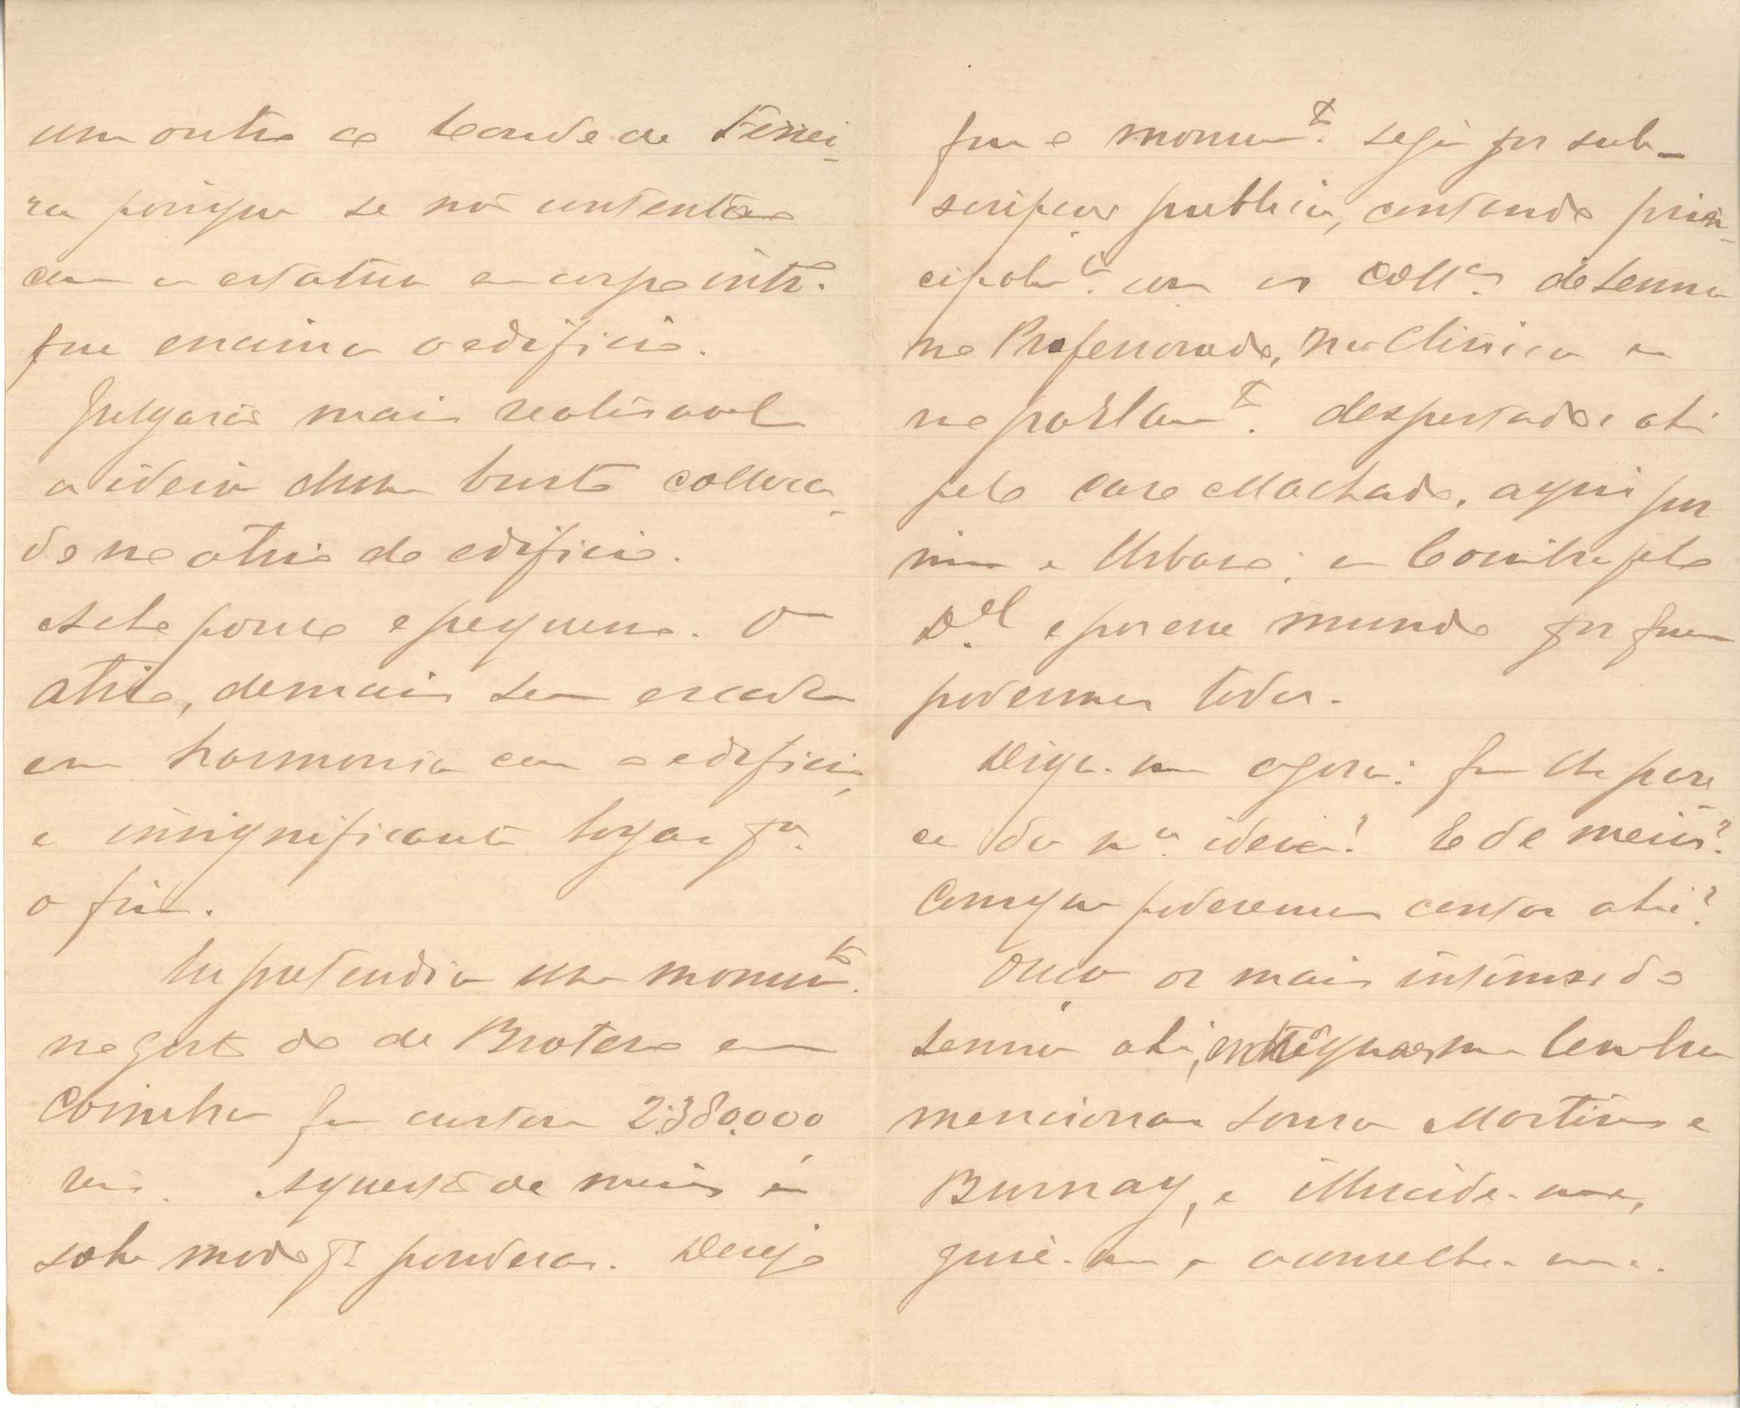 um outro ao Conde de Ferrei-
ra porque se não contentão
com a estatua em corpo intr.º
que encima o edificio.
Julgarão mais realisavel
a ideia dum busto colloca-
do no atrio do edificio.
Acho pouco e pequeno. O
atrio, demais sem escada
em harmonia com o edificio,
é insignificante logar pª.
o fim.
Eu pretendia um monumto.
no gosto do de Brotero em
Coimbra que custou 2:380.000
reis. A questão de meios é
sobre modo pª ponderar. Desejo
que o monumto. seja por sub-
scripção publica, contando prin-
cipalmte. com os collas. de Senna
no Professorado, na Clinica e
no parlamto. despertados ahi
pelo caro Machado, aqui por
mim e Urbano; em Coimbra pelo
Del. e por esse mundo por quem
podermos todos.
Diga-me agora: que lhe pare
ce da nª. ideia? E de meios?
Com que poderemos contar ahi?
Ouça os mais intimos do
Senna ahi, entre quaes me lembra
mencionar Sousa Martins e
Burnay, e illucide-me,
guie-me, e aconselhe-me.